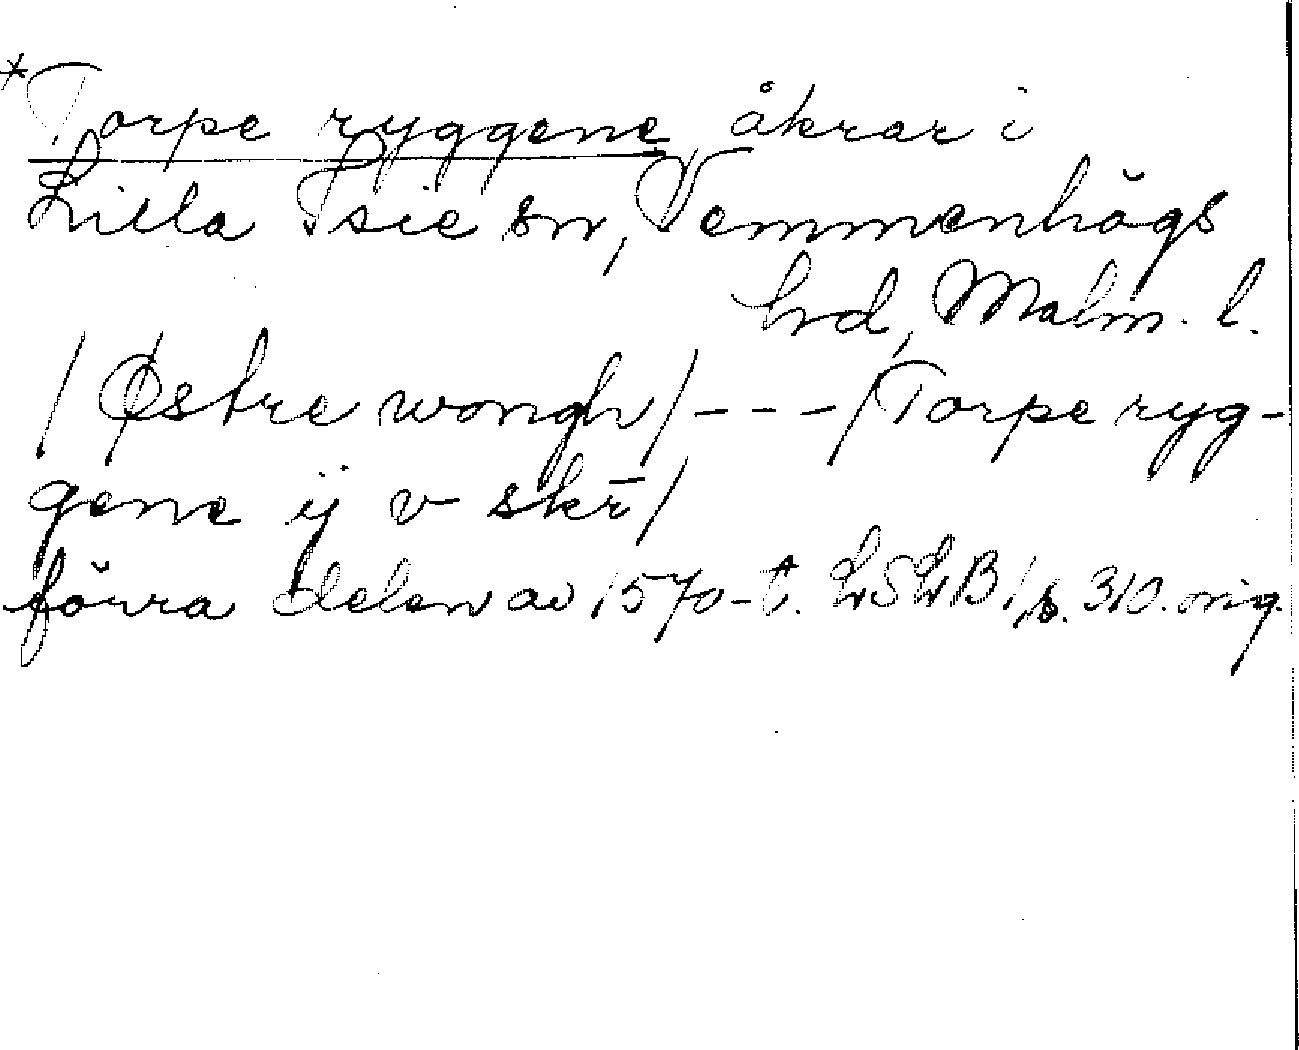 *Torpe ryggene åkrar i
Lilla Isie sn, Vemmenhögs
hrd, Malm. l.
/Østre wongh/---/Torpe ryg-
gene ij v skr̄/
förra delen av 1570-t. LSLB 1, s. 310. orig.